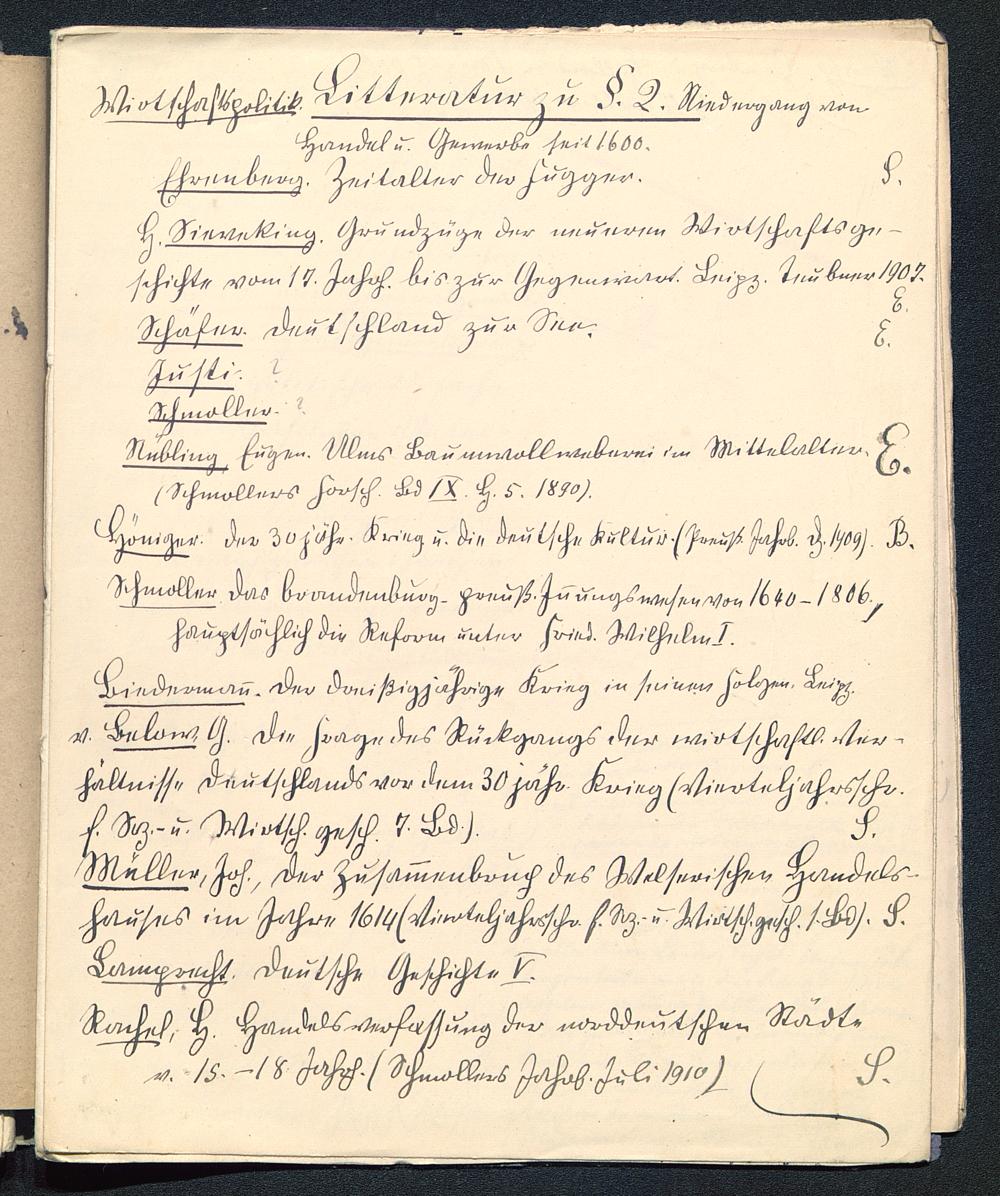 Wirtschaftspolitik. Litteratur zu §. 2. Niedergang von
Handel u. Gewerbe seit 1600.
Ehrenberg. Zeitalter der Fugger. S.
H. Sieveking. Grundzüge der neueren Wirtschaftsge-
schichte vom 17. Jahrh. bis zur Gegenwart. Leipz. Teubner 1907.
E.
Schäfer. Deutschland zur See. E.
Justi. ?
Schmoller. ?
Nübling, Eugen. Ulms Baumwollweberei im Mittelalter. E.
(Schmollers Forsch. Bd IX. H. 5. 1890).
Höniger. der 30 jähr. Krieg u. die deutsche Kultur. (Preuß. Jahrb. 1909). B.
Schmoller das brandenburg-preuß. Iñungswesen von 1640-1806,
hauptsächlich die Reform unter Fried. Wilhelm I.
Biedermañ. Der dreißigjährige Krieg in seinen Folgen. Leipz.
v. Below. G. Die Frage des Rückgangs der wirtschaftl. Ver-
hältnisse Deutschlands vor dem 30 jähr. Krieg (Vierteljahrsschr.
f. Soz.- u. Wirtsch. gesch. 7. Bd.). S.
Müller, Joh., Der Zusam̃enbruch des Welserischen Handels-
hauses im Jahre 1614 (Vierteljahrsschr. f. Soz.- u. Wirtsch. gesch. 1. Bd). S.
Lamprecht. Deutsche Geschichte V.
Rachel, H. Handelsverfassung der norddeutschen Städte
v. 15.-18 Jahrh. (Schmollers Jahrb. Juli 1910) S.